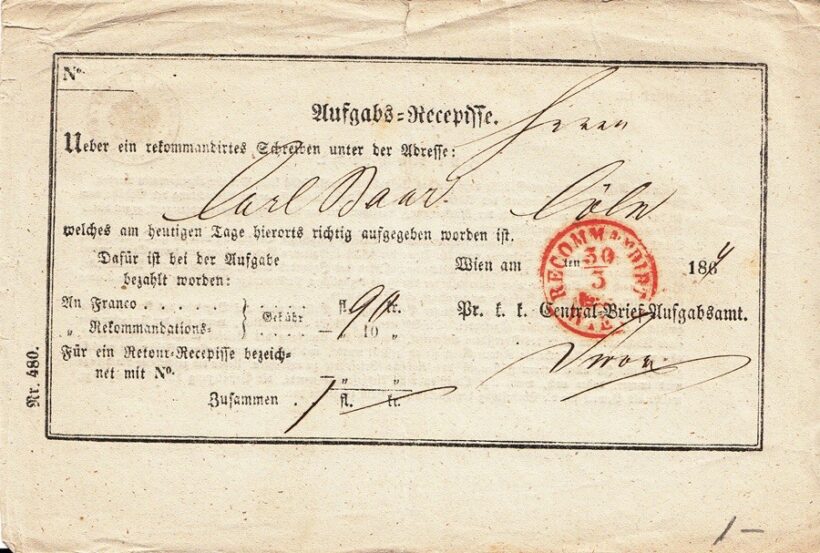 Nº.
Aufgabs=Recepisse. Herrn
Ueber ein rekommandirtes Schreiben unter der Adresse:
Carl Baar Cöln
welches am heutigen Tage hierorts richtig aufgegeben worden ist.
Dafür ist bei der Aufgabe
bezahlt worden:
Wien am ten 30/5 1864
RECOMMANDIRT WIEN
An Franco . . . . . } . . . . . fl. 90 kr.
„ Rekommandations= } Gebühr . . . . — „ 10 „
Pr. k. k. Central=Brief=Aufgabsamt.
Für ein Retour=Recepisse bezeich-
net mit Nº. — „ „
Zusammen . 1 fl. — kr.
Nr. 480.
1—